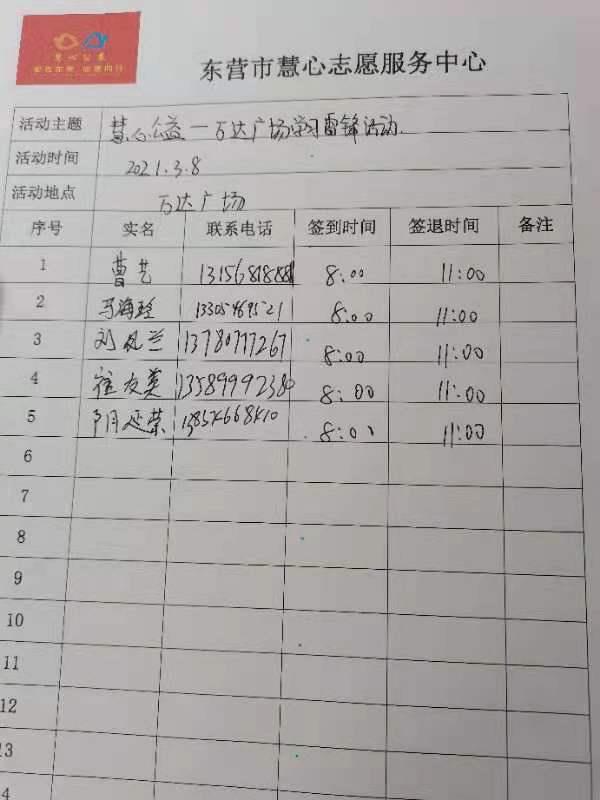 慧心公益
东营市慧心志愿服务中心
活动主题 慧心公益一万达广场学习雷锋活动
活动时间 2021.3.8
活动地点 万达广场
序号 实名 联系电话 签到时间 签退时间 备注
1 曹艺 8:00 11:00
2 13305469521 8:00 11:00
3 刘凤兰 13780777267 8:00 11:00
4 崔友英 13589992380 8:00 11:00
5 阴延荣 8:00 11:00
6
7
8
9
10
11
12
13
4